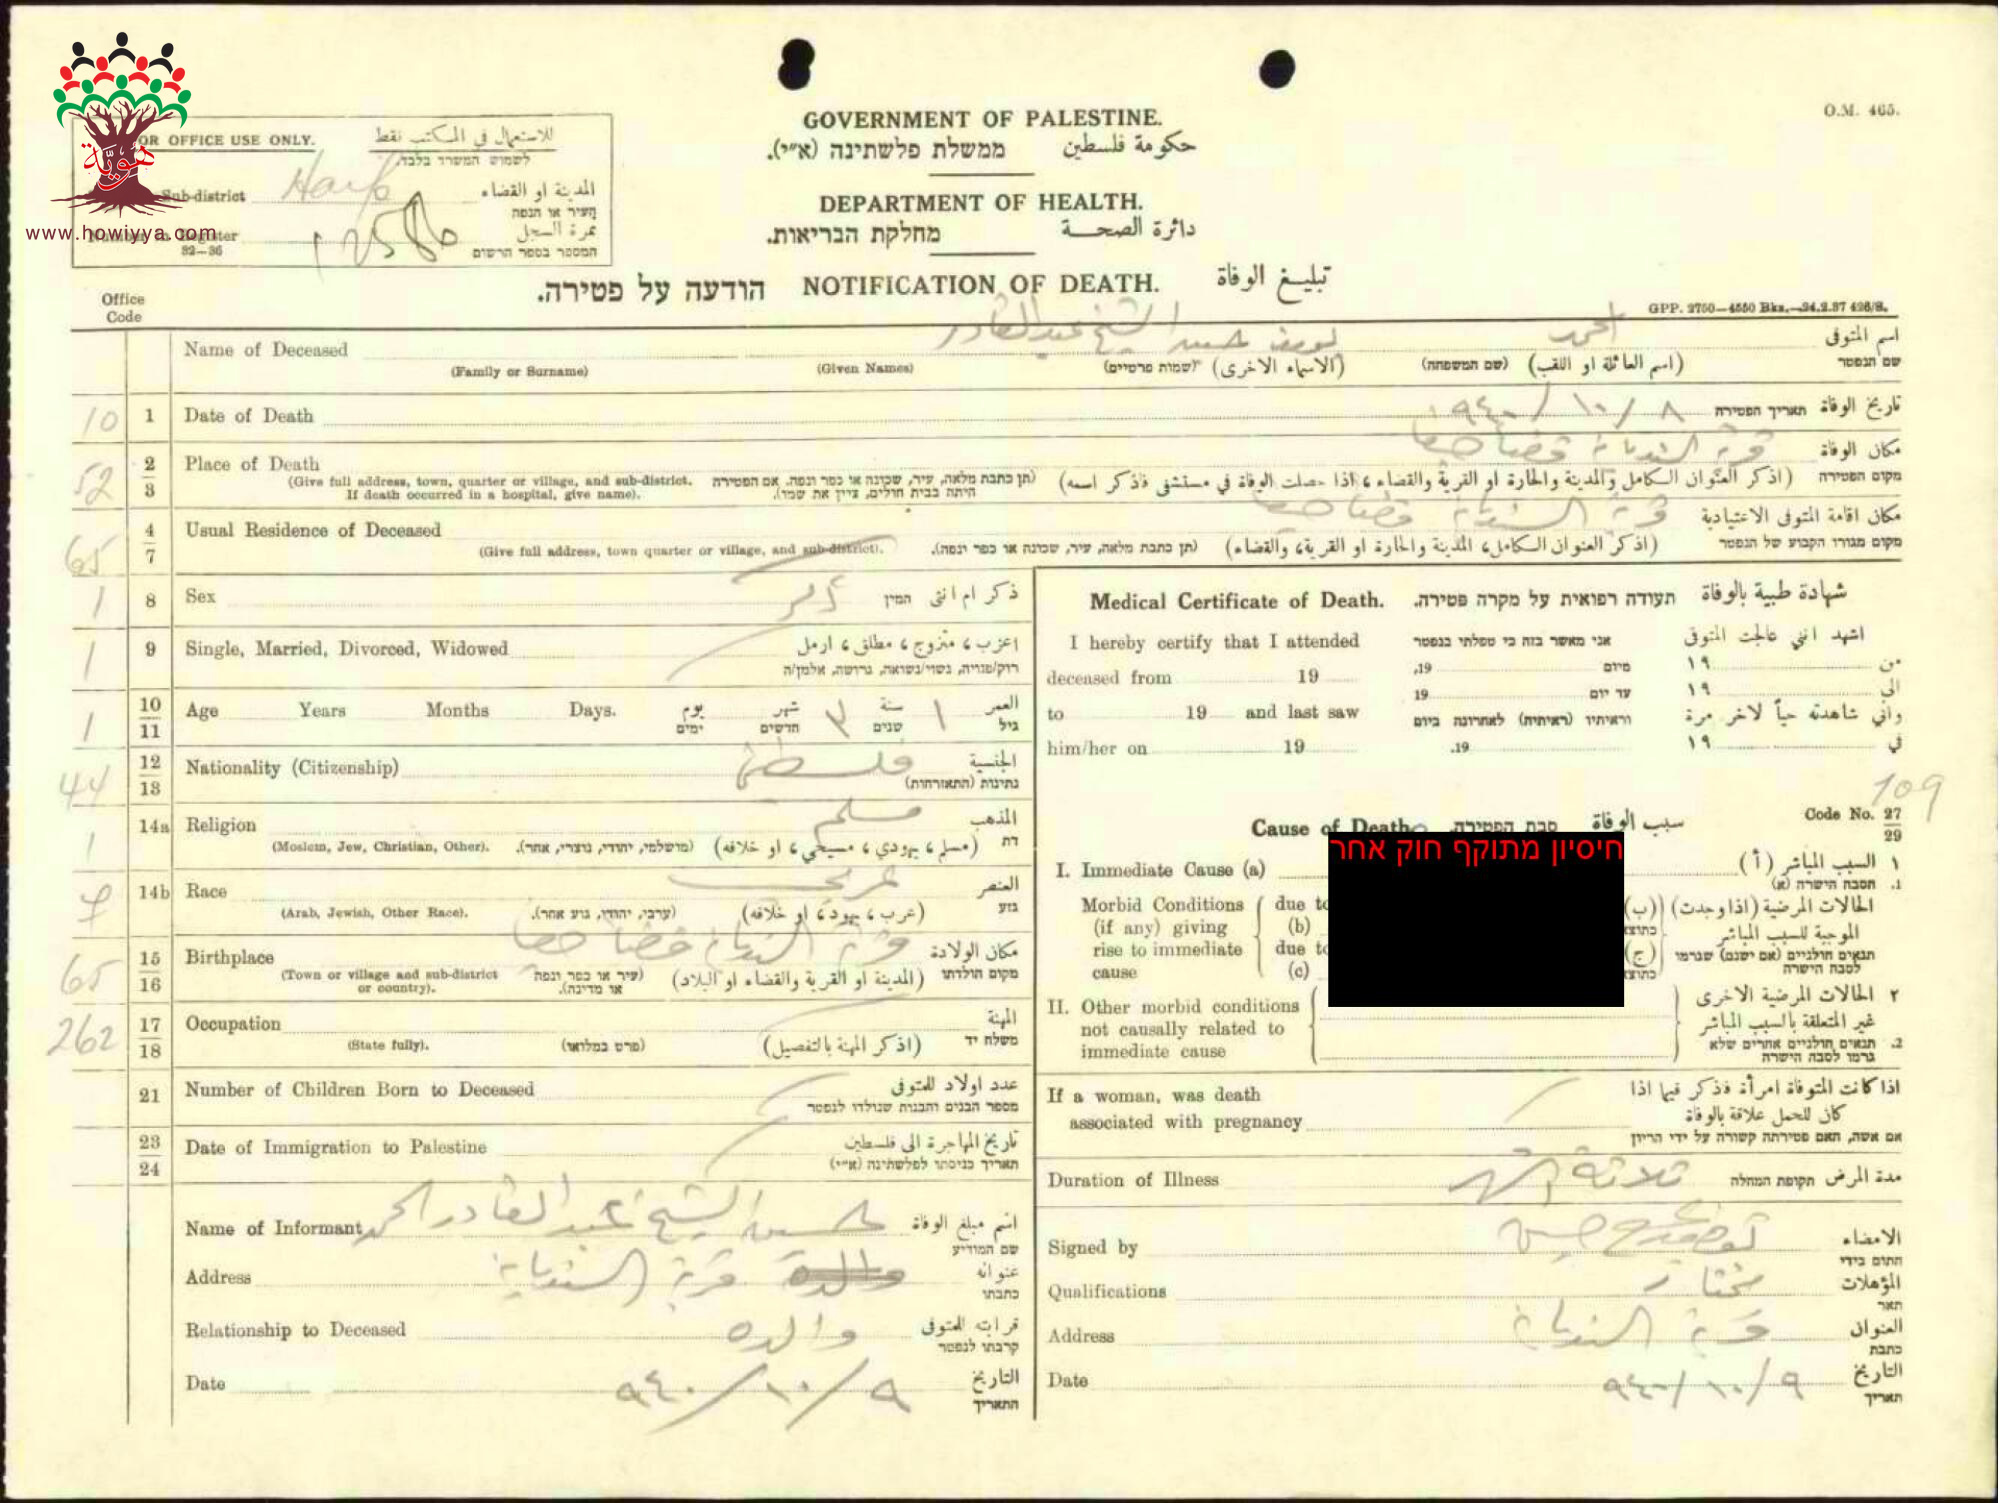 هويّة
www.howiyya.com
O.M. 465.
FOR OFFICE USE ONLY. للاستعمال في المكتب فقط
לשמוש המשרד בלבד
Sub-district Haifa المدينة او القضاء
העיר או הנפה
Number in Register نمرة السجل
32—36 המספר בספר הרשום
GOVERNMENT OF PALESTINE.
ממשלת פלשתינה (א״י). حكومة فلسطين
DEPARTMENT OF HEALTH.
מחלקת הבריאות. دائرة الصحة
הודעה על פטירה. NOTIFICATION OF DEATH. تبليغ الوفاة
GPP. 2750—4550 Bks.—24.2.37 426/S.
Office
Code
Name of Deceased يوسف حسين الشيخ عبدالقادر احمد اسم المتوفى
(Family or Surname) (Given Names) (שמות פרטיים) (الاسماء الاخرى) (שם המשפחה) (اسم العائلة او اللقب) שם הנפטר
10 1 Date of Death ٨/١٠/٩٤٠ תאריך הפטירה تاريخ الوفاة
52 2 3 Place of Death قرية السنديانة قضا حيفا مكان الوفاة
(Give full address, town, quarter or village, and sub-district. If death occurred in a hospital, give name).
(תן כתבת מלאה, עיר, שכונה או כפר ונפה. אם הפטירה היתה בבית חולים, ציין את שמו).
(اذكر العنوان الكامل والمدينة والحارة او القرية والقضاء، اذا حصلت الوفاة في مستشفى فاذكر اسمه) מקום הפטירה
65 4 7 Usual Residence of Deceased قرية السنديانة قضا حيفا مكان اقامة المتوفى الاعتيادية
(Give full address, town quarter or village, and sub-district). (תן כתבת מלאה, עיר, שכונה או כפר ונפה). (اذكر العنوان الكامل، المدينة والحارة او القرية، والقضاء) מקום מגורו הקבוע של הנפטר
1 8 Sex ذكر המין ذكر ام انثى
1 9 Single, Married, Divorced, Widowed اعزب، متزوج، مطلق، ارمل
רוק/פנויה, נשוי/נשואה, גרושה, אלמן/ה
1 10 11 Age Years Months Days. يوم شهر ٣ سنة ١ العمر
ימים חדשים שנים גיל
44 12 13 Nationality (Citizenship) فلسطيني الجنسية
נתינות (התאזרחות)
1 14a Religion مسلم المذهب
(Moslem, Jew, Christian, Other). (מושלמי, יהודי, נוצרי, אחר). (مسلم، يهودي، مسيحي، او خلافه) דת
14b Race عربي العنصر
(Arab, Jewish, Other Race). (ערבי, יהודי, גזע אחר). (عرب، يهود، او خلافه) גזע
65 15 16 Birthplace قرية السنديانة قضا حيفا مكان الولادة
(Town or village and sub-district or country). (עיר או כפר ונפה או מדינה). (المدينة او القرية والقضاء او البلاد) מקום הולדתו
262 17 18 Occupation المهنة
(State fully). (פרט במלואו) (اذكر المهنة بالتفصيل) משלח יד
21 Number of Children Born to Deceased عدد اولاد للمتوفى
מספר הבנים והבנות שנולדו לנפטר
23 24 Date of Immigration to Palestine تاريخ المهاجرة الى فلسطين
תאריך כניסתו לפלשתינה (א״י)
Name of Informant حسين الشيخ عبد القادر احمد اسم مبلغ الوفاة
שם המודיע
Address قرية السنديانة عنوانه
כתבתו
Relationship to Deceased والده قرابته للمتوفى
קרבתו לנפטר
Date ٩/١٠/٩٤٠ التاريخ
התאריך
Medical Certificate of Death. תעודה רפואית על מקרה פטירה. شهادة طبية بالوفاة
I hereby certify that I attended אני מאשר בזה כי טפלתי בנפטר اشهد انني عالجت المتوفى
deceased from 19 מיום 19, من ١٩
to 19 and last saw עד יום 19 الى ١٩
וראיתיו (ראיתיה) לאחרונה ביום واني شاهدته حياً لاخر مرة
him/her on 19 19. في ١٩
109
Cause of Death סבת הפטירה. سبب الوفاة Code No. 27 29
חיסיון מתוקף חוק אחר
I. Immediate Cause (a) ١ السبب المباشر (أ)
1. הסבה הישרה (א)
Morbid Conditions due to (ب) الحالات المرضية (اذا وجدت)
(if any) giving (b) الموجبة للسبب المباشر
rise to immediate due to (ج) תנאים חולניים (אם ישנם) שגרמו
cause (c) לסבה הישרה
II. Other morbid conditions ٢ الحالات المرضية الاخرى
not causally related to غير المتعلقة بالسبب المباشر
immediate cause 2. תנאים חולניים אחרים שלא
גרמו לסבה הישרה
If a woman, was death اذا كانت المتوفاة امرأة فذكر فيما اذا
associated with pregnancy كان للحمل علاقة بالوفاة
אם אשה, האם פטירתה קשורה על ידי הריון
Duration of Illness ثلاثة اشهر תקופת המחלה مدة المرض
Signed by الامضاء
חתום בידי
Qualifications مختار المؤهلات
תאר
Address قرية السنديانة العنوان
כתבת
Date ٩/١٠/٩٤٠ التاريخ
תאריך